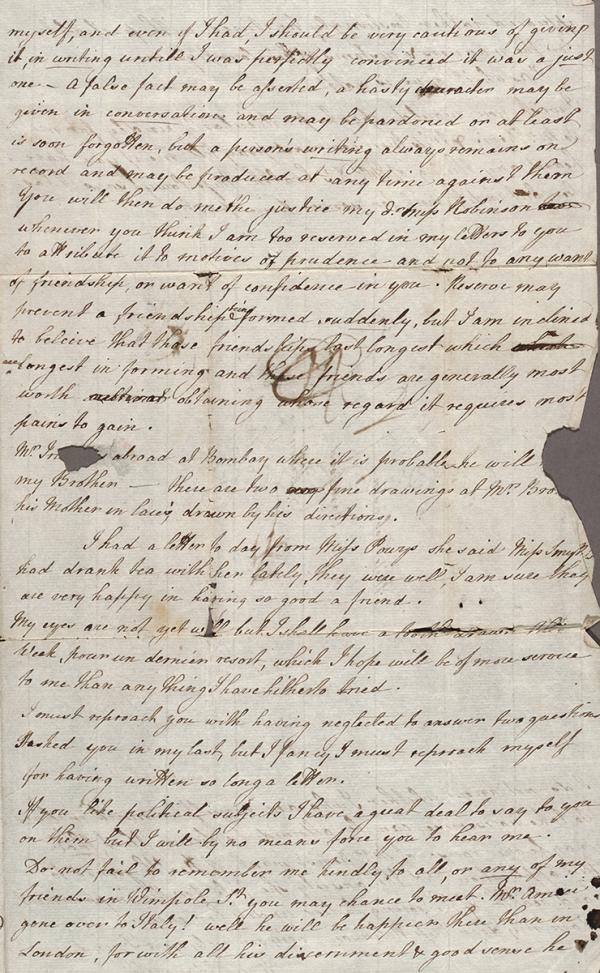 myself, and even if I had, I should be very cautious of giving
it, in writing untill I was perfectly convinced it was a just
one – A false fact may be asserted, a hasty character may be
given in conversation and may be pardoned or at least
is soon forgotten, but a person's writing always remains on
record and may be produced at any time against them
You will then do me the justice my dr. Miss Robinson
whenever you think I am too reserved in my letters to you
to attribute it to motives of prudence and not to any want
of friendship, or want of confidence in you. Reserve may
prevent a friendship being formed suddenly, but I am inclined
to beleive that those friendships last longest which
are longest in forming and those friends are generally most
worth obtaining whose regard it requires most
pains to gain.
Mr. abroad at Bombay where it is probable he will
my Brother — there are two fine drawings at Mrs
his Mother in laws, drawn by his directions.
I had a letter to day from Miss Powys she said Miss
had drank tea with her lately, they were well, I am sure they
are very happy in having so good a friend.
My eyes are not yet well but I shall have a tooth drawn this
Week, pour un dernier resort, which I hope will be of more service
to me than any thing I have hitherto tried.
I must reproach you with having neglected to answer two questions
I asked you in my last, but I fancy I must reproach myself
for having written so long a letter.
If you like political subjects I have a great deal to say to you
on them but I will by no means force you to hear me.
Do not fail to remember me kindly to all, or any of my
friends in Wimpole St. you may chance to meet.
gone over to Italy! well he will be happier there than in
London, for with all his discernment & good sense he